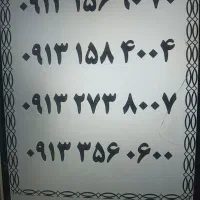 ۰۹۱۳ ۱۵۸ ۴۰۰۴
۰۹۱۳ ۲۷۳ ۸۰۰۷
۰۹۱۳ ۳۵۶ ۰۶۰۰